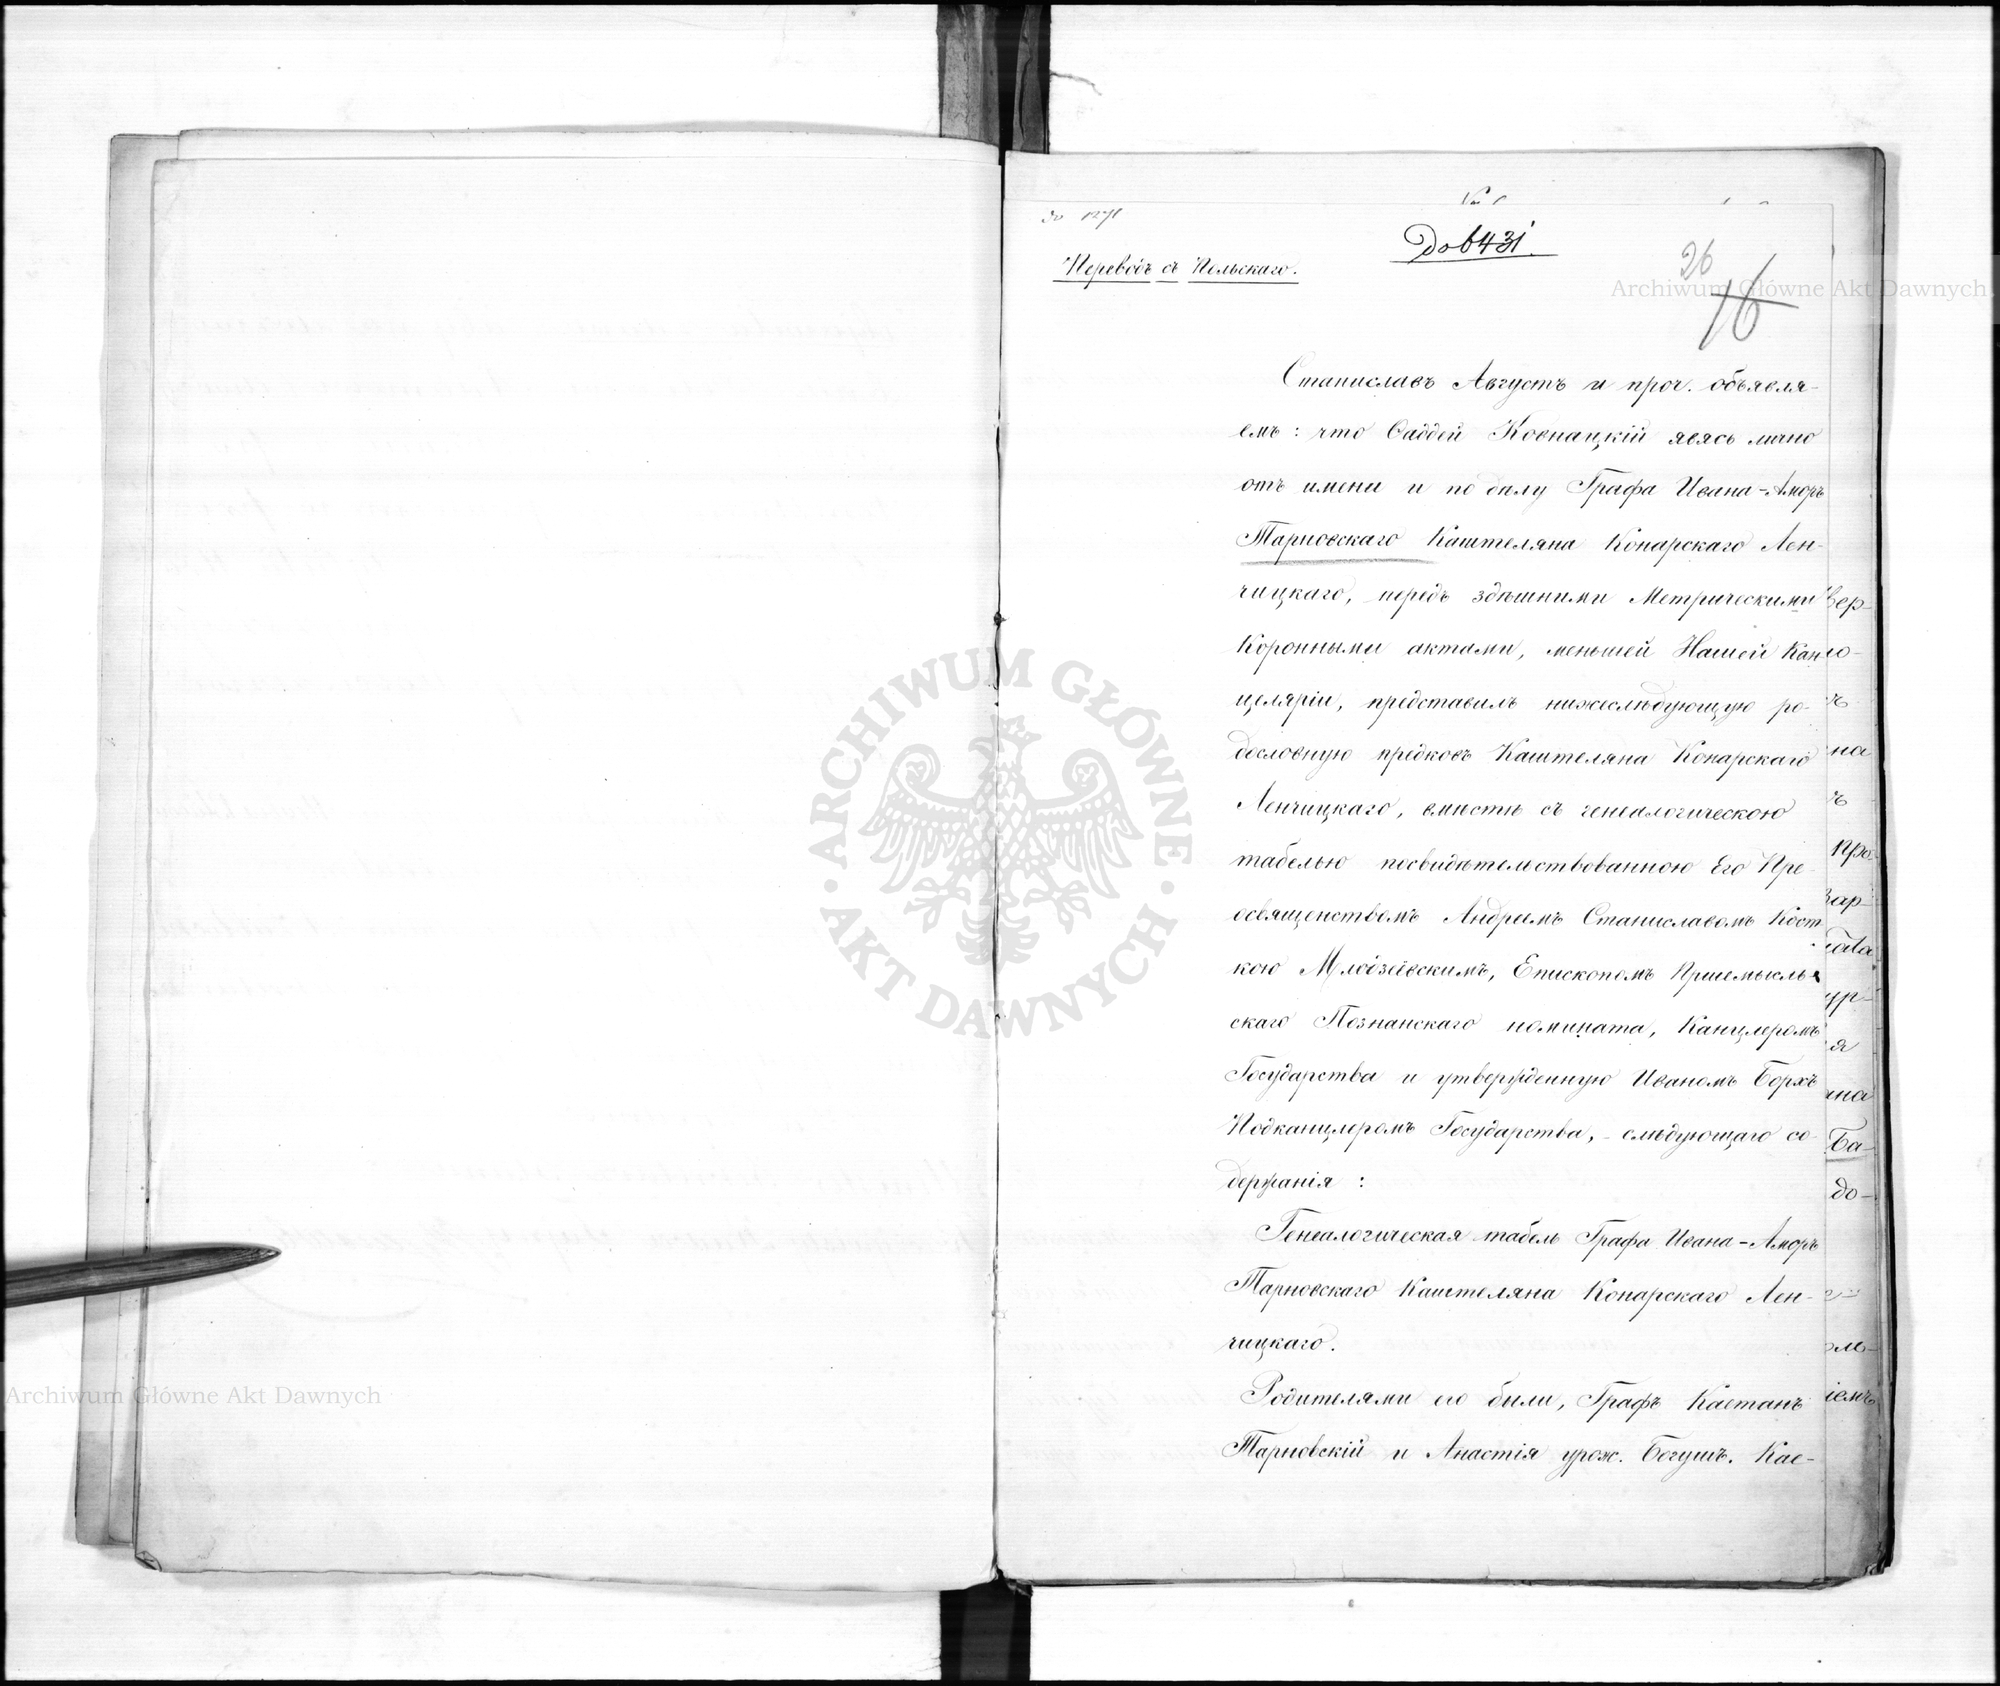 до 1271
до 6431
Переводъ съ Польскаго.
26
16
Станиславъ Августъ и проч. объявля-
емъ: что Фаддей Ковнацкій явясь лично
отъ имени и по дѣлу Графа Ивана-Аморъ
Тарновскаго Каштеляна Конарскаго Лен-
чицкаго, передъ здѣшними Метрическими
Коронными актами, меньшей Нашей Кан-
целяріи, представилъ нижеслѣдующую ро-
дословную предковъ Каштеляна Конарскаго
Ленчицкаго, вмѣстѣ съ генеалогическою
табелью посвидѣтельствованною Его Пре-
освященствомъ Андреемъ Станиславомъ Кост-
кою Млодзѣевскимъ, Епископомъ Пршемысль-
скаго Познанскаго номината, Канцлеромъ
Государства и утвержденную Иваномъ Борхъ
Подканцлеромъ Государства, - слѣдующаго со-
держанія:
Генеалогическая табель Графа Ивана-Аморъ
Тарновскаго Каштеляна Конарскаго Лен-
чицкаго.
Родителями его были, Графъ Каетанъ
Тарновскій и Анастія урож. Богушъ. Кае-
вер-
ло-
ъ
на
ъ
про-
зар-
ур-
я
на
Ба-
до-
іемъ
ARCHIWUM GŁÓWNE · AKT DAWNYCH ·
Archiwum Główne Akt Dawnych
Archiwum Główne Akt Dawnych